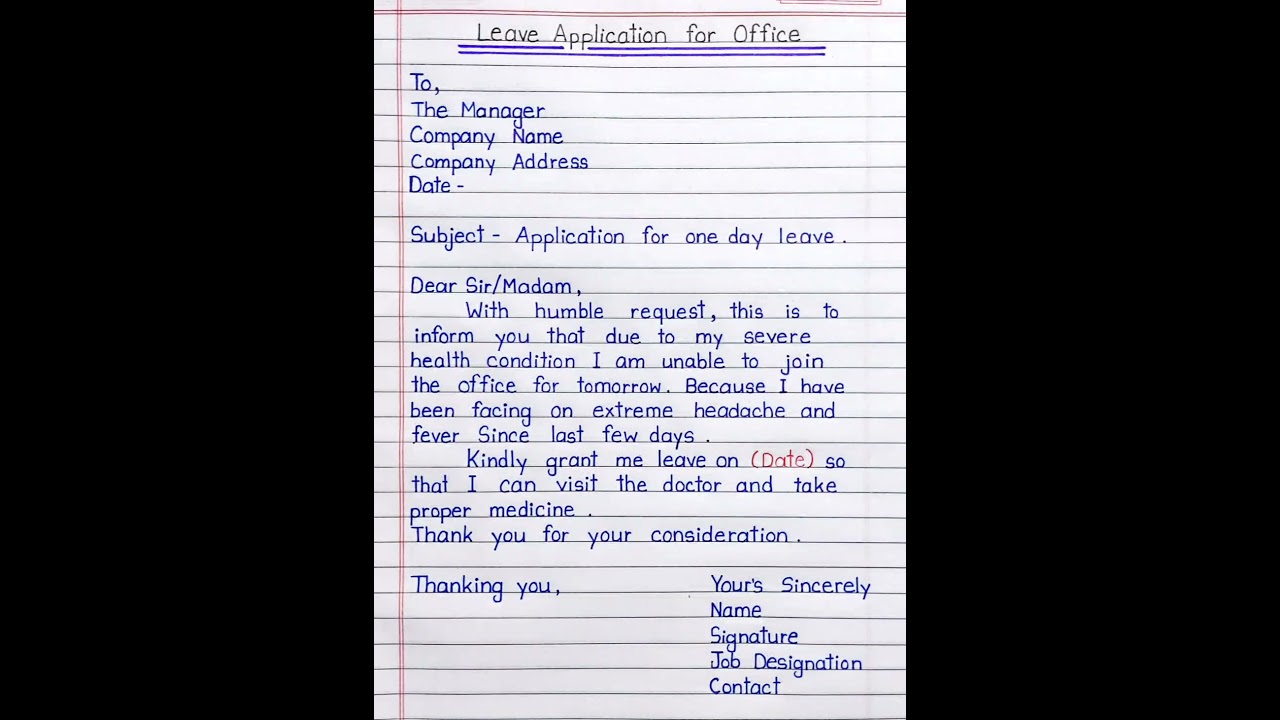 Leave Application for Office
To,
The Manager
Company Name
Company Address
Date -
Subject - Application for one day leave.
Dear Sir/Madam,
With humble request, this is to
inform you that due to my severe
health condition I am unable to join
the office for tomorrow. Because I have
been facing on extreme headache and
fever Since last few days.
Kindly grant me leave on (Date) so
that I can visit the doctor and take
proper medicine.
Thank you for your consideration.
Thanking you,
Your's Sincerely
Name
Signature
Job Designation
Contact